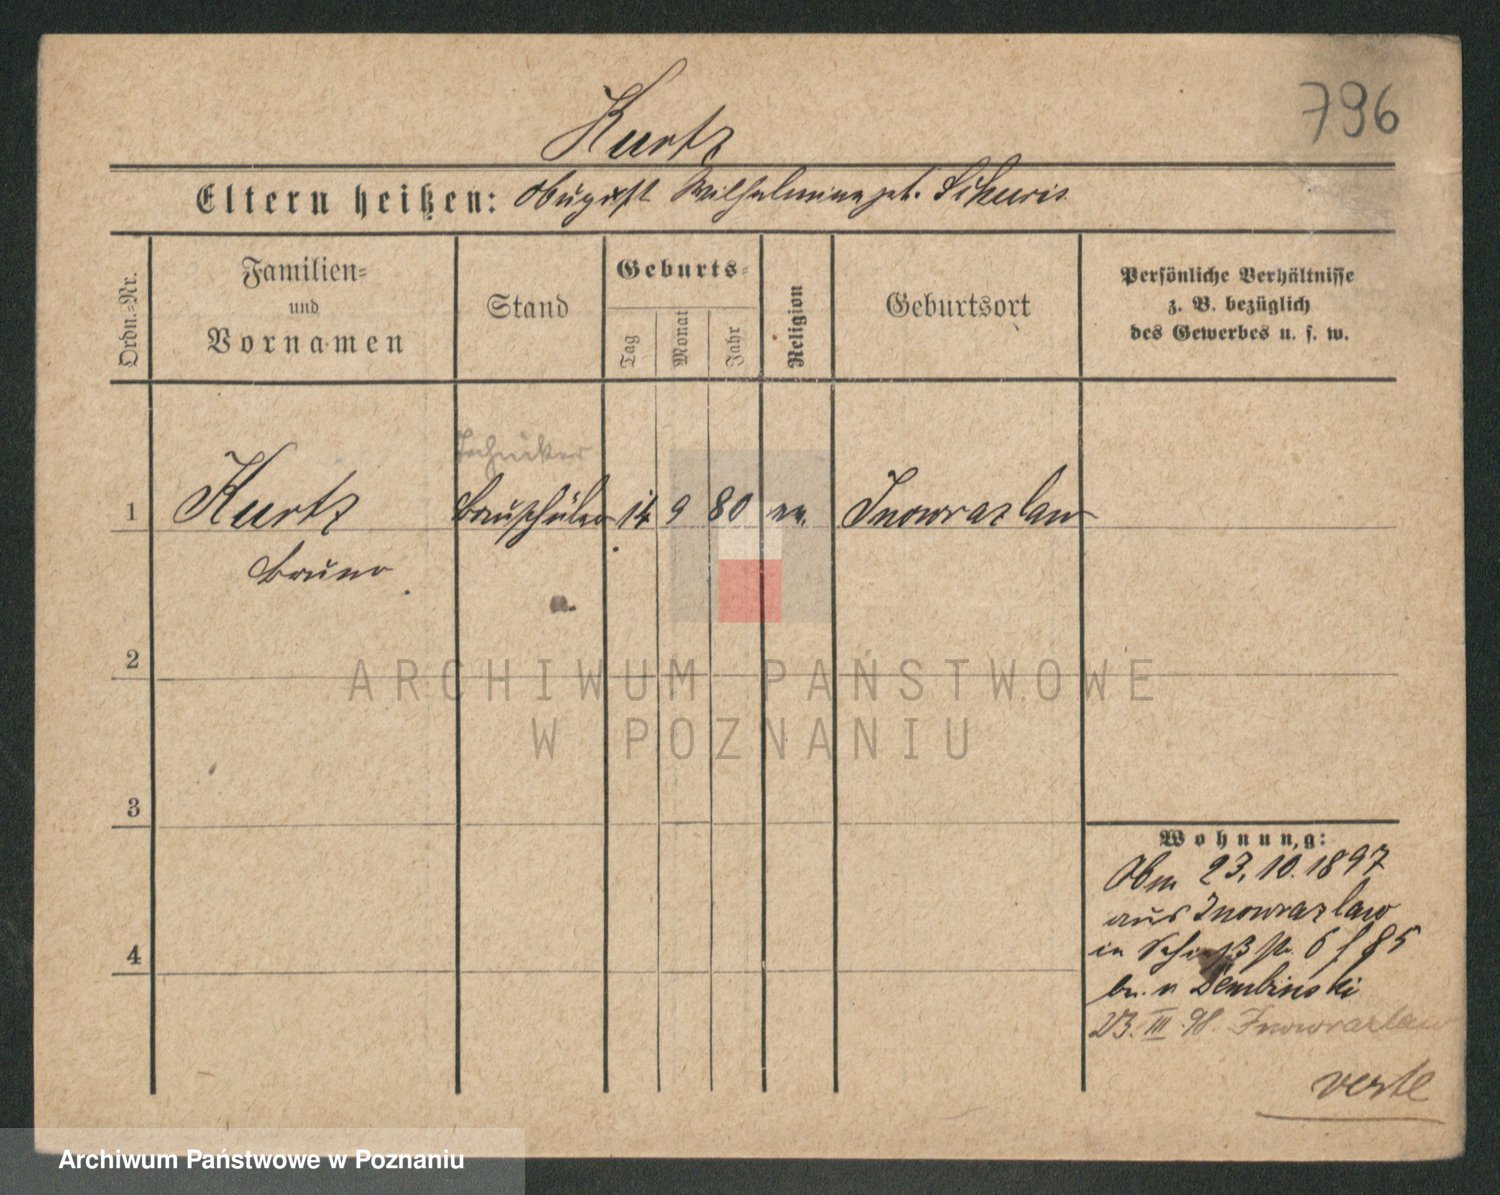 796
Kurtz
Eltern heißen: August Wilhelmine geb.
Ordn.=Nr.
Familien=
und
Vornamen
Stand
Geburts=
Tag
Monat
Jahr
Religion
Geburtsort
Persönliche Verhältnisse
z. B. bezüglich
des Gewerbes u. s. w.
Techniker
1 Kurtz Bauschüler 14 9 80 ev. Inowrazlaw
Bruno
2
ARCHIWUM PAŃSTWOWE
W POZNANIU
3
Wohnung:
Abm 23.10.1897
aus Inowrazlaw
4
in 6 f 85
b. v Dembinski
23. III 98. Inowrazlaw
verte
Archiwum Państwowe w Poznaniu